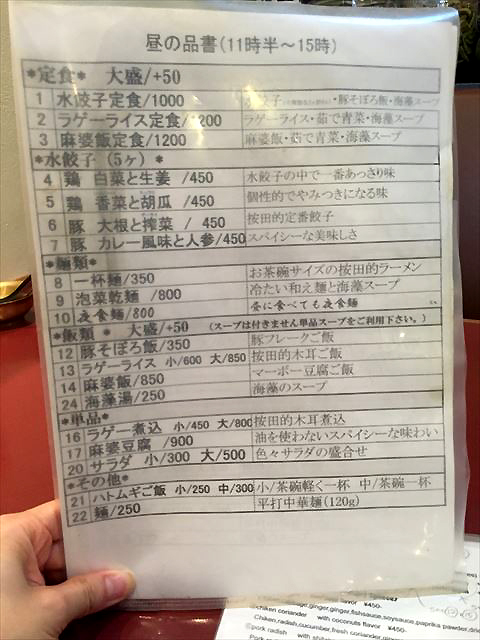 昼の品書(11時半～15時)
*定食* 大盛/+50
1 水餃子定食/1000 水餃子 ・豚そぼろ飯・海藻スープ
2 ラゲーライス定食/1200 ラゲーライス・茹で青菜・海藻スープ
3 麻婆飯定食/1200 麻婆飯・茹で青菜・海藻スープ
*水餃子（5ヶ）*
4 鶏 白菜と生姜 /450 水餃子の中で一番あっさり味
5 鶏 香菜と胡瓜 /450 個性的でやみつきになる味
6 豚 大根と搾菜 / 450 按田的定番餃子
7 豚 カレー風味と人参/450 スパイシーな美味しさ
*麺類*
8 一杯麺/350 お茶碗サイズの按田的ラーメン
9 泡菜乾麺 /800 冷たい和え麺と海藻スープ
10 夜食麺/800 昼に食べても夜食麺
*飯類* 大盛/+50 (スープは付きません単品スープをご利用下さい。)
12 豚そぼろ飯/350 豚フレークご飯
13 ラゲーライス 小/600 大/850 按田的木耳ご飯
14 麻婆飯/850 マーボー豆腐ご飯
24 海藻湯/250 海藻のスープ
*単品*
16 ラゲー煮込 小/450 大/800 按田的木耳煮込
17 麻婆豆腐 /900 油を使わないスパイシーな味わい
20 サラダ 小/300 大/500 色々サラダの盛合せ
*その他*
21 ハトムギご飯 小/250 中/300 小/茶碗軽く一杯 中/茶碗一杯
22 麺/250 平打中華麺(120g)
ginger,ginger,fishsauce,soysauce,paprika powder
chiken coriander with coconuts flavor ¥450-
Chiken,radish,cucumber,fresh coriander,ginger
pork radish with